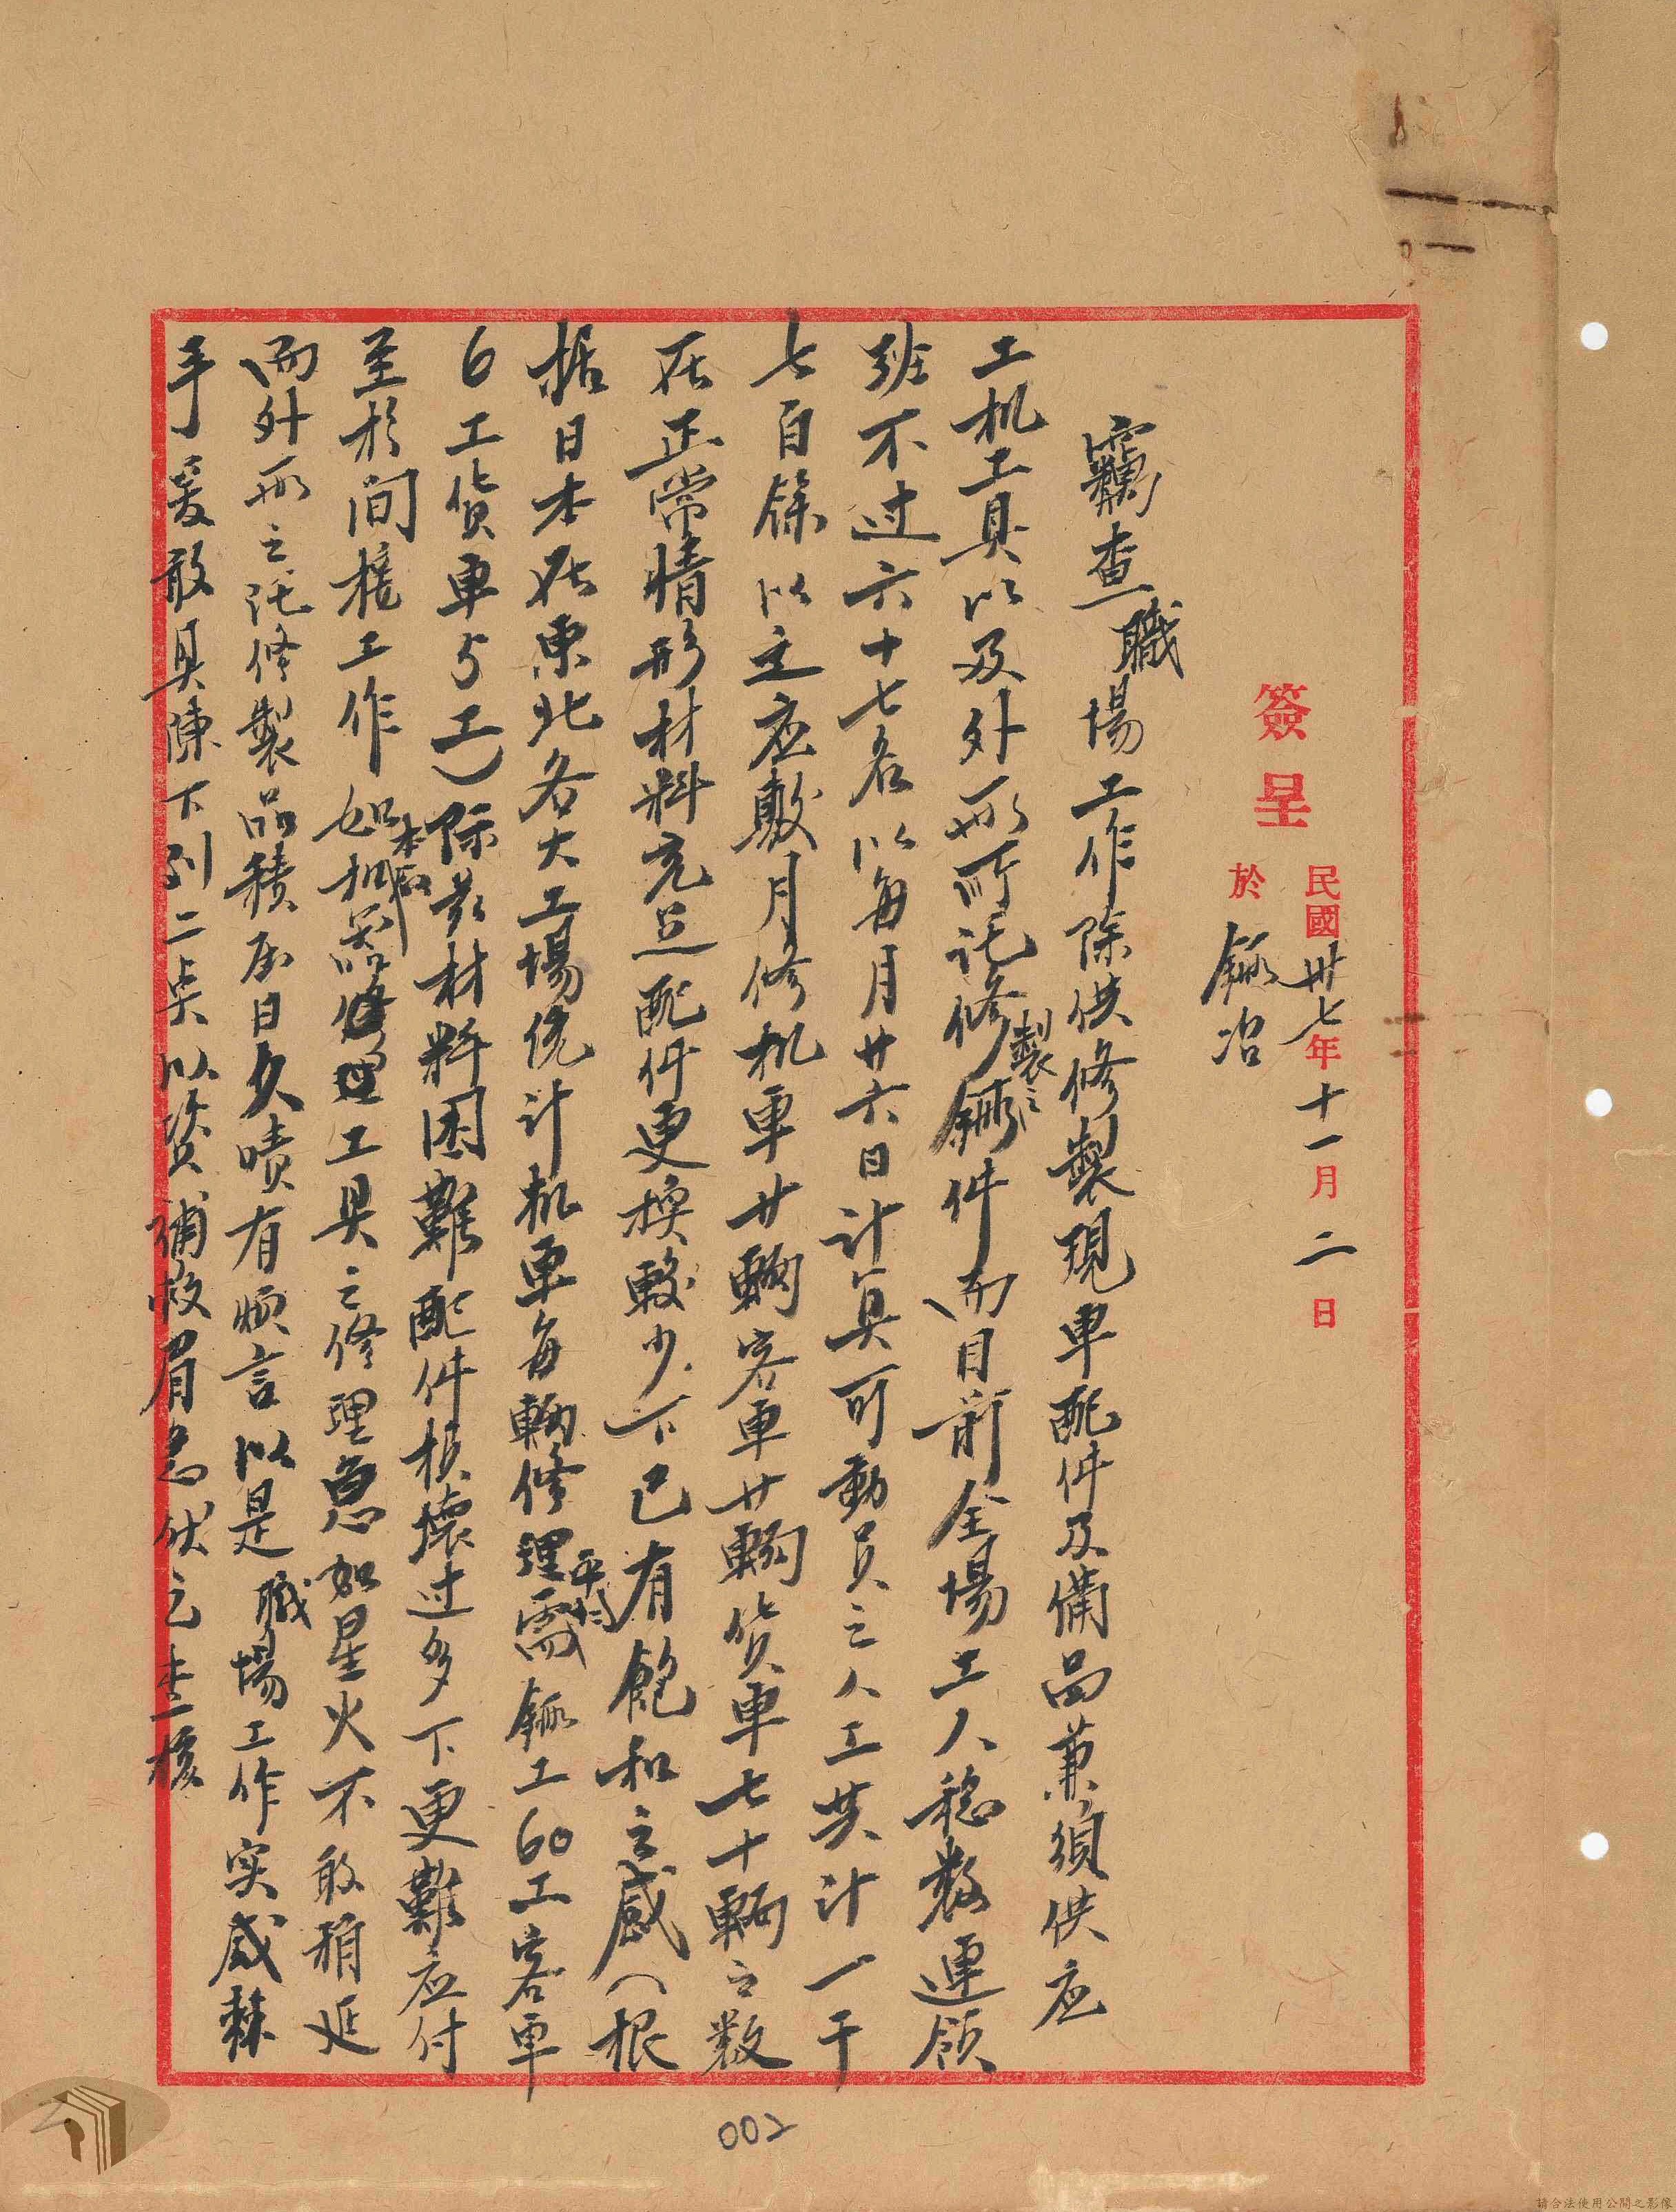 民國卅七年十一月二日
簽呈 於 鍛冶
竊查職場工作除供修製現車配件及備品兼須供应
工机工具以及外段所託修製之鍛件而目前全場工人總数連領
班不过六十七名以每月廿六日計算可動員之人工共計一千
七百餘以之应敷月修机車廿輛客車廿輛貨車七十輛之数
在正常情形材料充足配件更換較少下已有飽和之感（根
据日本在東北各大工場統計机車每輛修理平均需鍛工60工客車
6工貨車5工）際兹材料困難配件損壞过多下更難应付
至於间接工作如本廠机器修理工具之修理急如星火不敢稍延
而外段之託修製品積压日久嘖有煩言以是職場工作実感棘
手爰敢具陳下列二点以資補救眉急伏乞查核
002
請合法使用公開之影像